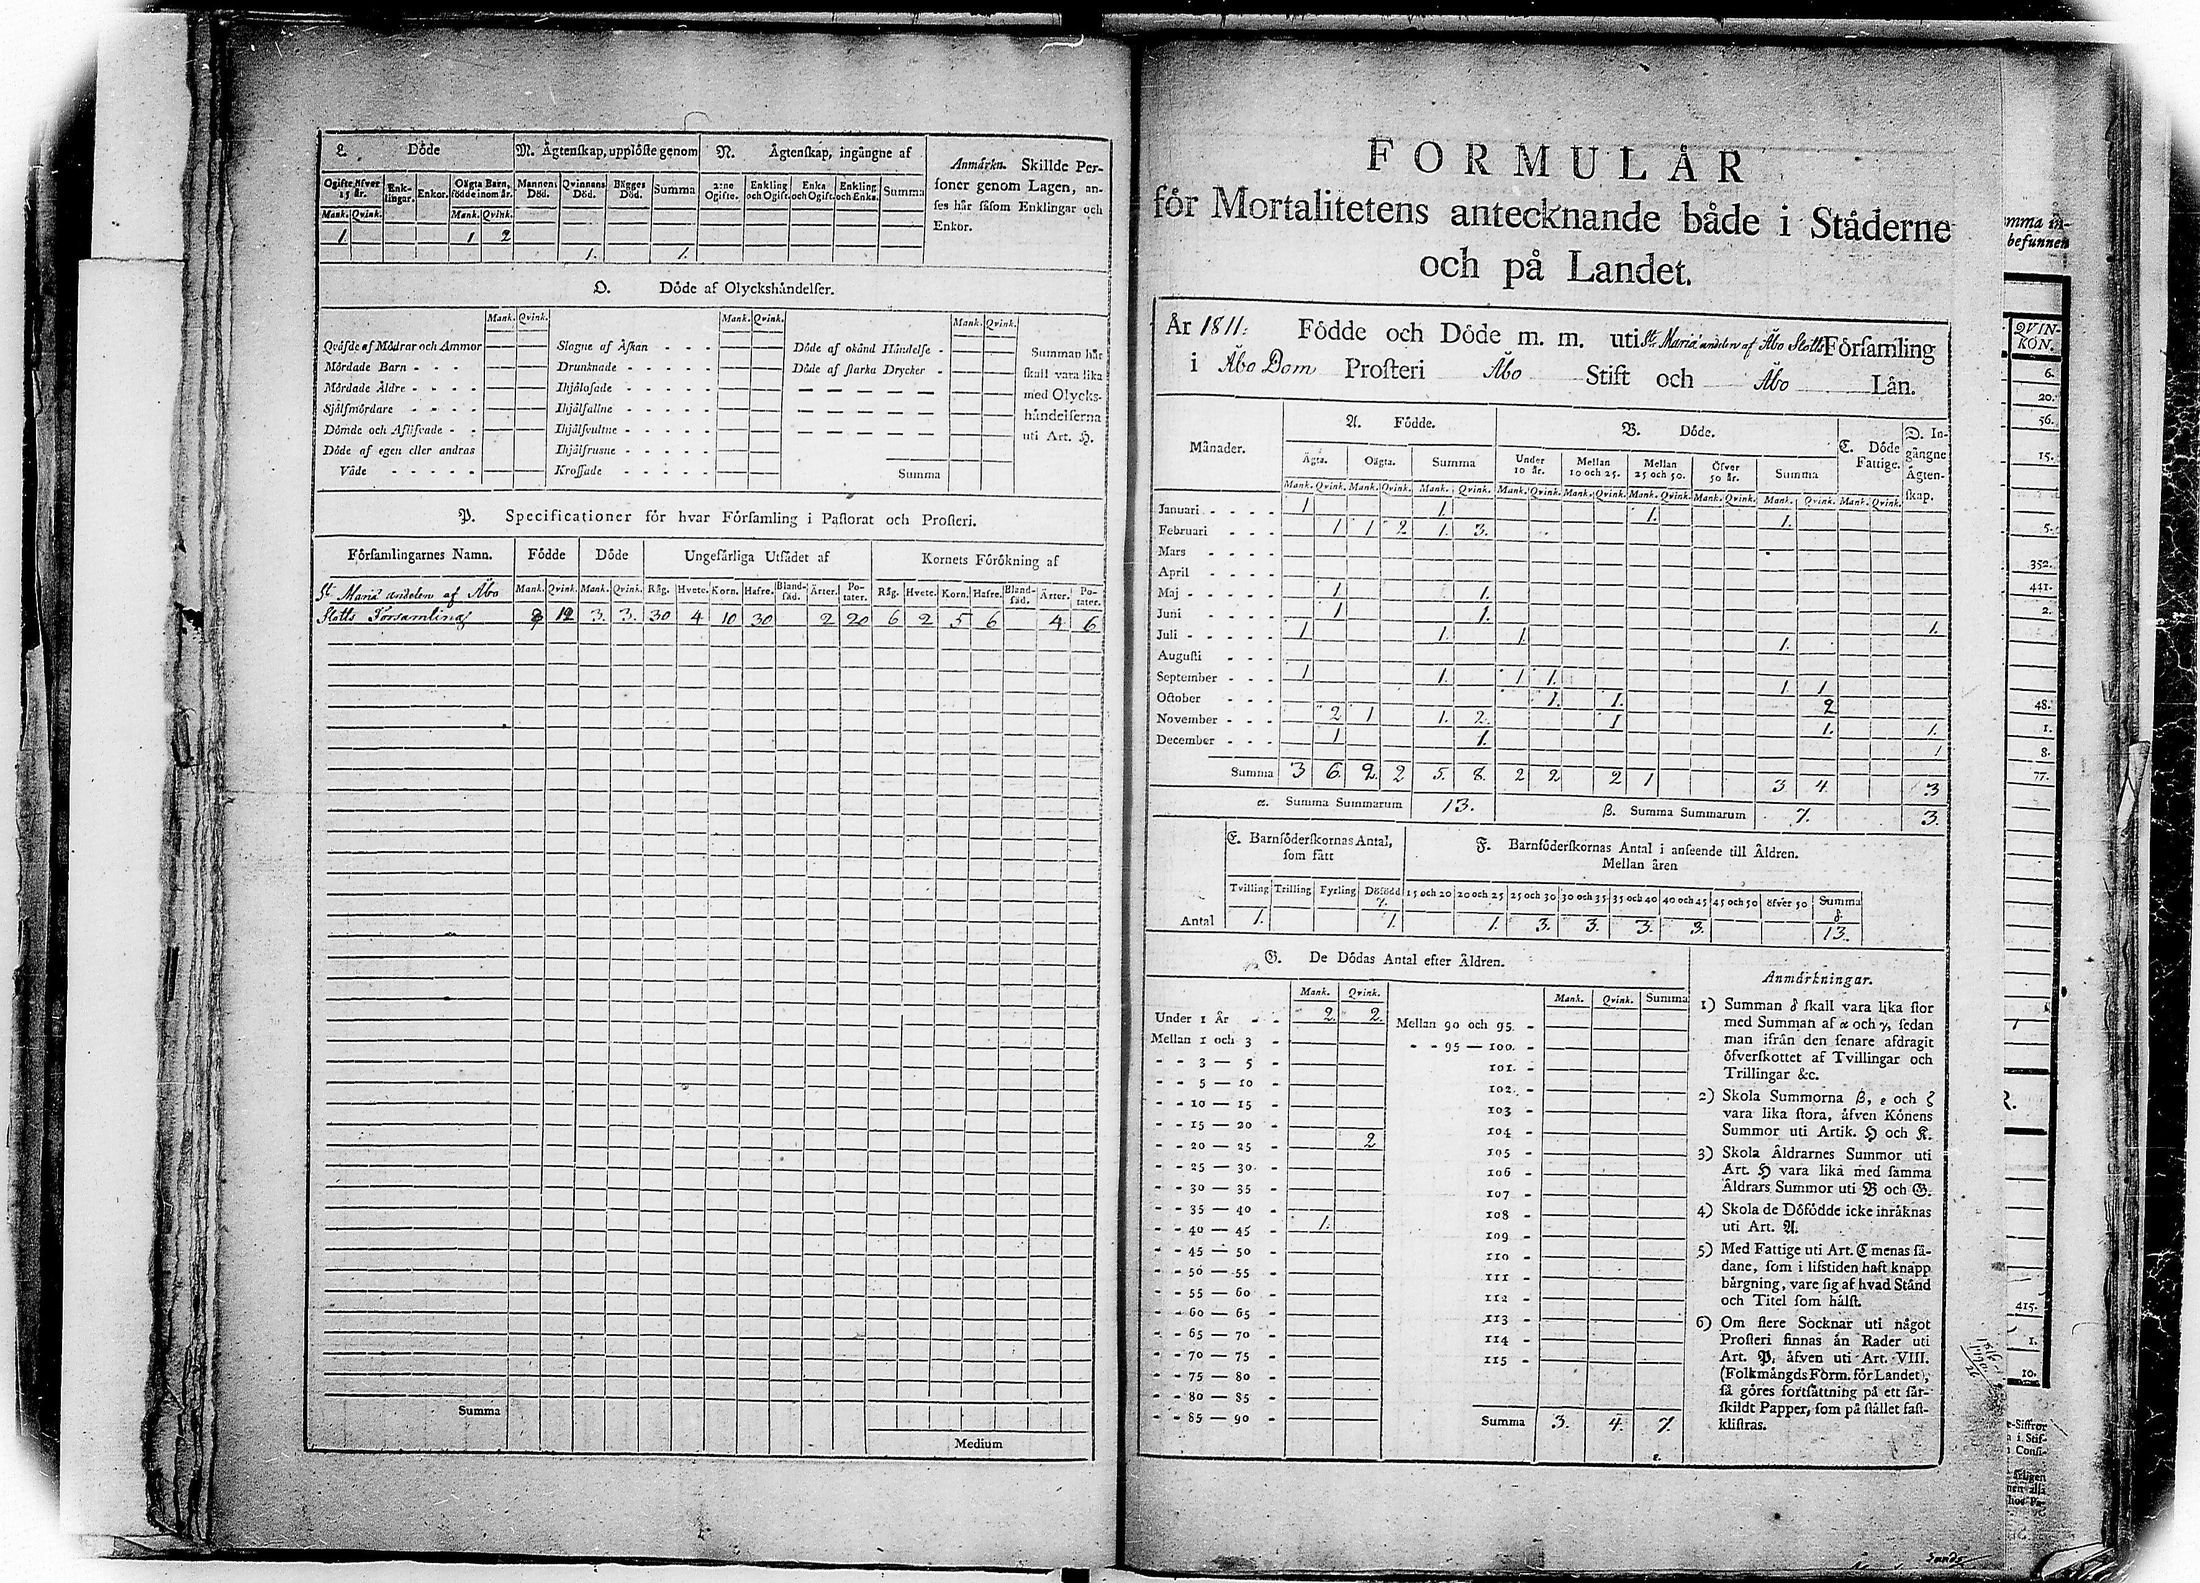 L. Döde
M. Ägtenskap, upplöste genom
N. Ägtenskap, ingångne af
Ogifte öfver 15 år. Enk-lingar. Enkor. Oägta Barn, födde inom år. Mannens Död. Qvinnans Död. Bägges Död. Summa 2:ne Ogifte. Enkling och Ogift. Enka och Ogift. Enkling och Enka. Summa
Mank. Qvink. Mank. Qvink.
1 1 2
1. 1.
Anmärkn. Skillde Per-
soner genom Lagen, an-
ses här såsom Enklingar och
Enkor.
O. Döde af Olyckshändelser.
Mank. Qvink. Mank. Qvink. Mank. Qvink.
Qväfde af Mödrar och Ammor
Mördade Barn
Mördade Äldre
Sjelfmördare
Dömde och Aflifvade
Döde af egen eller andras
Våde
Slagne af Åskan
Drunknade
Ihjälosade
Ihjälfallne
Ihjälsvultne
Ihjälfrusne
Krossade
Döde af okänd Händelse
Döde af starka Drycker
Summa
Summan här
skall vara lika
med Olycks-
händelserna
uti Art. H.
P. Specificationer för hvar Församling i Pastorat och Prosteri.
Församlingarnes Namn. Födde Döde Ungefärliga Utsädet af Kornets Förökning af
Mank. Qvink. Mank. Qvink. Råg. Hvete. Korn. Hafre. Bland-säd. Ärter. Po-tater. Råg. Hvete. Korn. Hafre. Bland-säd. Ärter. Po-tater.
St Mariæ andelen af Åbo
Slotts Församling 12 3. 3. 30 4 10 30 2 20 6 2 5 6 4 6
Summa
Medium
FORMULÄR
för Mortalitetens antecknande både i Städerne
och på Landet.
År 1811. Födde och Döde m. m. uti St Mariæ andelen af Åbo Slotts Församling
i Åbo Dom Prosteri Åbo Stift och Åbo Län.
Månader.
A. Födde.
B. Döde.
C. Döde Fattige.
D. In-gångne Ägten-skap.
Ägta. Oägta. Summa Under 10 år. Mellan 10 och 25. Mellan 25 och 50. Öfver 50 år. Summa
Mank. Qvink. Mank. Qvink. Mank. Qvink. Mank. Qvink. Mank. Qvink. Mank. Qvink. Mank. Qvink. Mank. Qvink. Mank. Qvink.
Januari 1 1. 1. 1.
Februari 1 1 2 1. 3.
Mars
April
Maj 1 1.
Juni 1 1.
Juli 1 1. 1. 1. 1.
Augusti
September 1 1. 1 1. 1 1
October 1. 1. 2
November 2 1 1. 2. 1 1. 1.
December 1 1. 1
Summa 3 6. 2. 2 5. 8. 2 2 2 1 3 4. 3
α. Summa Summarum 13. β. Summa Summarum 7. 3.
E. Barnföderskornas Antal,
som fått
F. Barnföderskornas Antal i anseende till Åldren.
Mellan åren
Tvilling Trilling Fyrling Döfödd 15 och 20 20 och 25 25 och 30 30 och 35 35 och 40 40 och 45 45 och 50 öfver 50 Summa
γ. δ.
Antal 1. 1. 1. 3. 3. 3. 3. 13.
G. De Dödas Antal efter Åldren.
Mank. Qvink. Mank. Qvink. Summa
Under 1 År 2. 2.
Mellan 1 och 3
3 — 5
5 — 10
10 — 15
15 — 20
20 — 25 2
25 — 30
30 — 35
35 — 40
40 — 45 1.
45 — 50
50 — 55
55 — 60
60 — 65
65 — 70
70 — 75
75 — 80
80 — 85
85 — 90
Mellan 90 och 95.
95 — 100.
101.
102.
103
104
105
106
107
108
109
110
111
112
113
114
115
Summa 3. 4. 7.
ε.
Anmärkningar.
1) Summan δ skall vara lika stor
med Summan af α och γ, sedan
man ifrån den senare afdragit
öfverskottet af Tvillingar och
Trillingar &c.
2) Skola Summorna β, ε och ζ
vara lika stora, äfven Könens
Summor uti Artik. H och K.
3) Skola Åldrarnes Summor uti
Art. H vara lika med samma
Åldrars Summor uti B och G.
4) Skola de Döfödde icke inräknas
uti Art. A.
5) Med Fattige uti Art. C menas så-
dane, som i lifstiden haft knapp
bärgning, vare sig af hvad Stånd
och Titel som hälst.
6) Om flere Socknar uti något
Prosteri finnas än Rader uti
Art. P, äfven uti Art. VIII.
(Folkmängds Form. för Landet),
så göres fortsättning på ett sär-
skildt Papper, som på stället fast-
klistras.
mma in-
befunnen
QVIN-
KÖN.
6.
20.
56.
15.
5.
352.
441.
2.
48.
1.
8.
77.
R.
415.
1.
10.